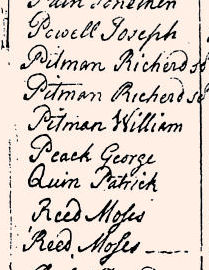 Powell Joseph
Pitman Richerd
Pitman Richerd
Pitman William
Peack George
Quin Patrick
Reed Moses
Reed Moses